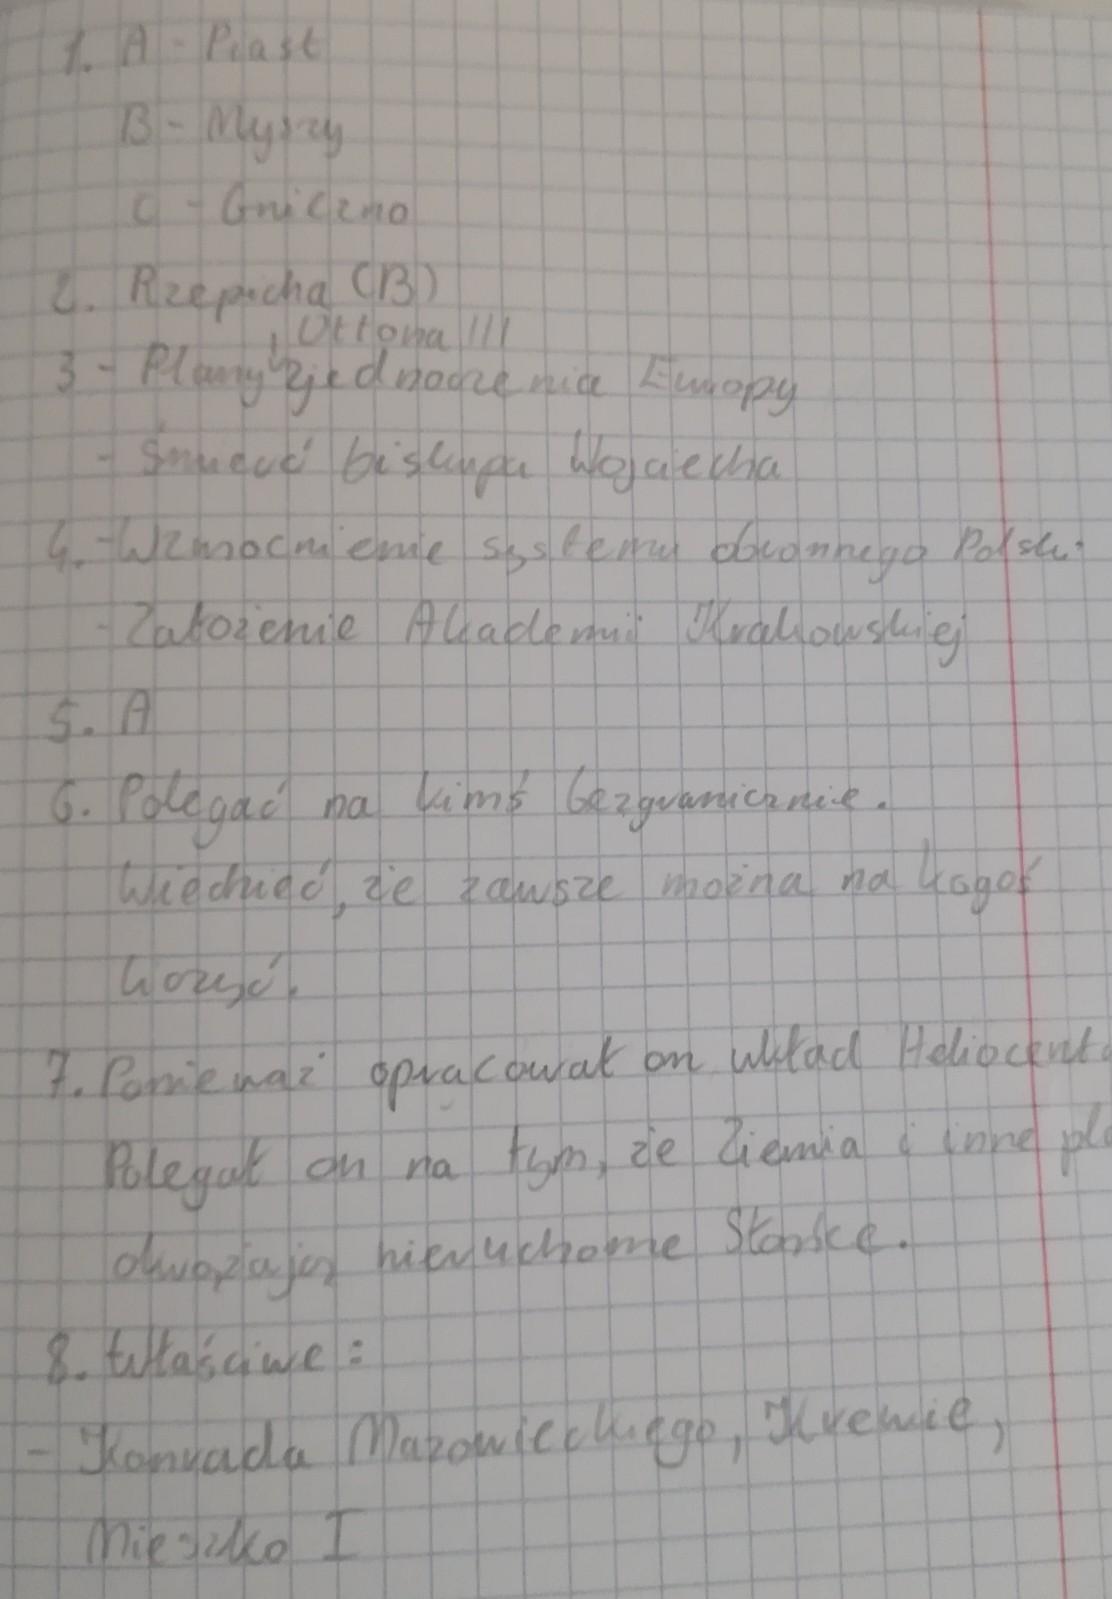 1. A - Piast
B - Myszy
C - Gniezno
2. Rzepicha (B)
Ottona III
3 - Plany zjednoczenia Europy
- Śmierć biskupa Wojciecha
4. - Wzmocnienie systemu obronnego Polski
- Założenie Akademii Krakowskiej
5. A
6. Polegać na kimś bezgranicznie.
Wiedzieć, że zawsze można na kogoś
liczyć.
7. Ponieważ opracował on układ Heliocent
Polegał on na tym, że Ziemia i inne pla
okrążają nieruchome Słońce.
8. Właściwe:
- Konrada Mazowieckiego, Krewie,
Mieszko I